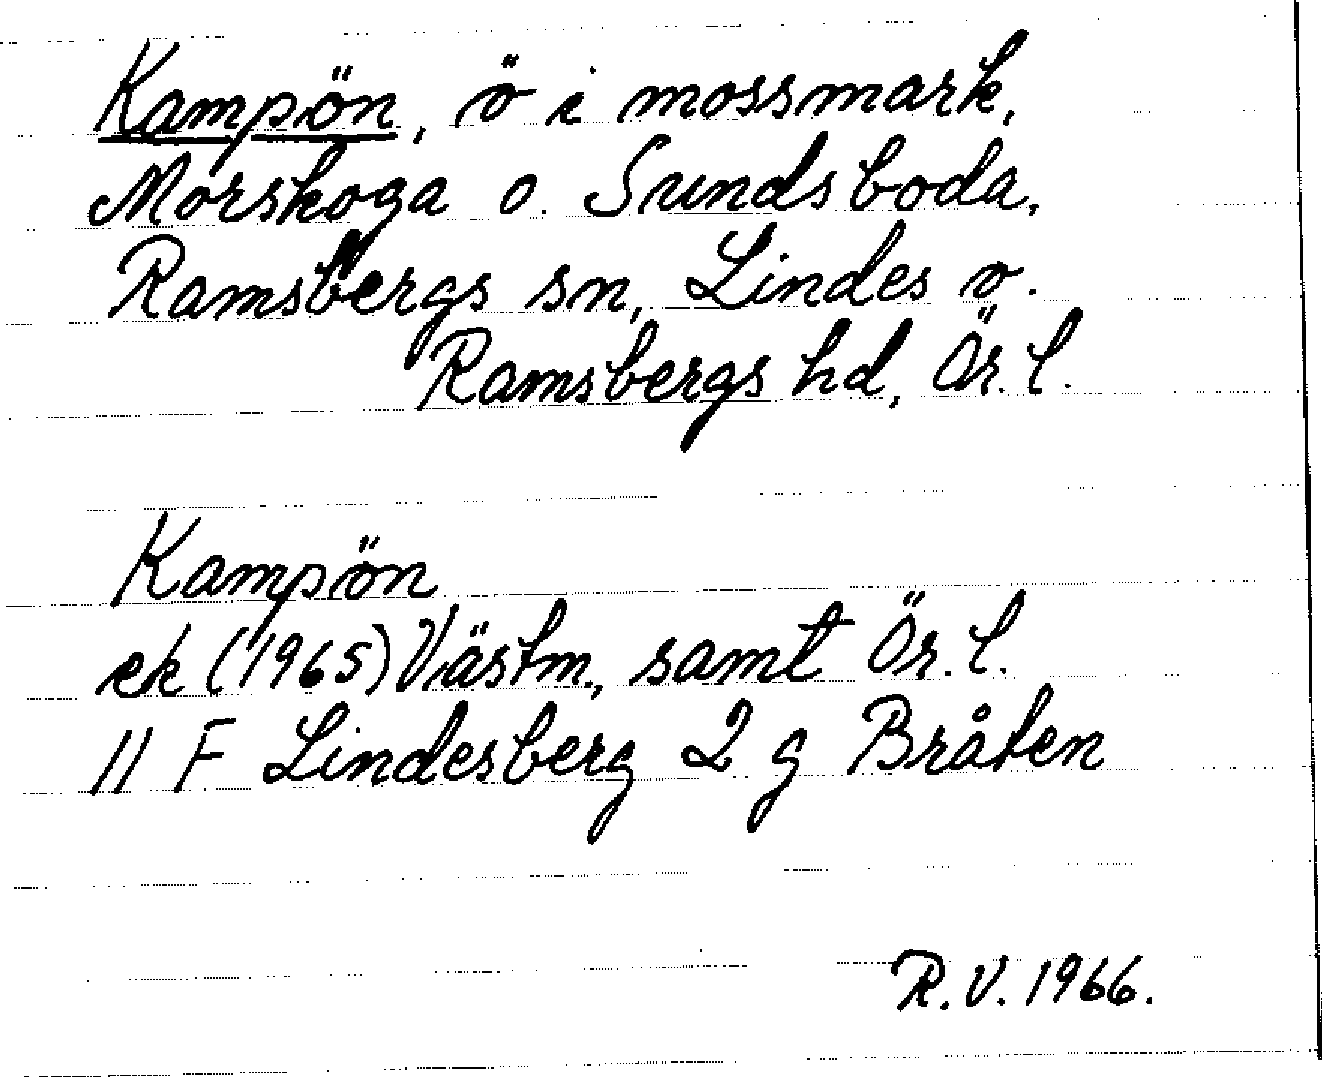 Kampön, ö i mossmark,
Morskoga o. Sundsboda,
Ramsbergs sn, Lindes o.
Ramsbergs hd, Ör. l.
Kampön
ek (1965) Västm., samt Ör. l.
11 F Lindesberg 2 g Bråten
R. V. 1966.